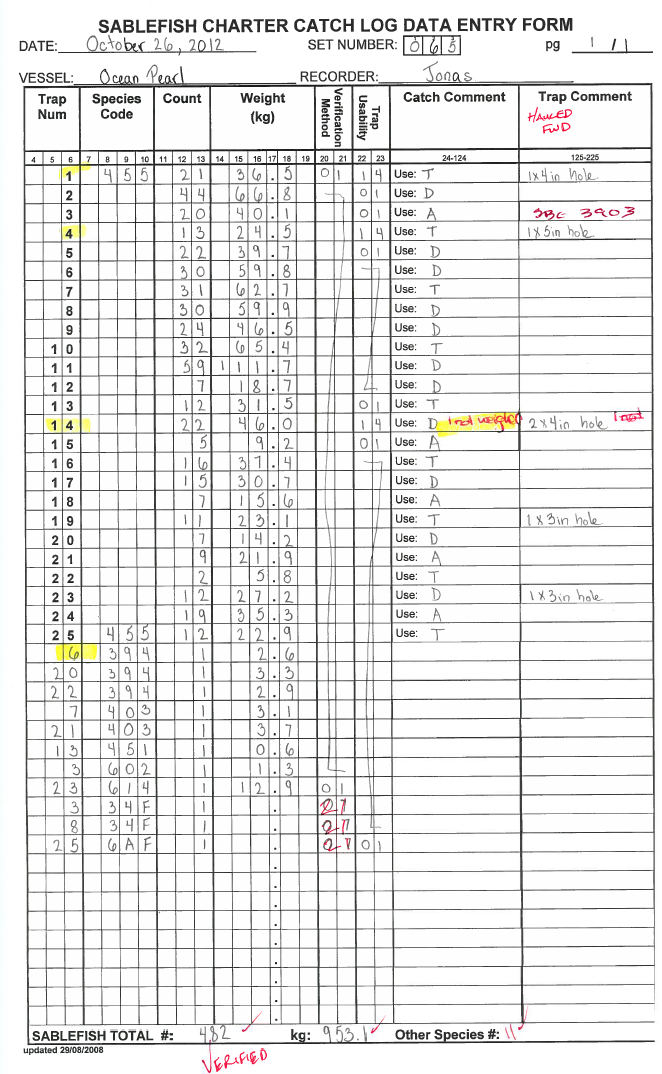 SABLEFISH CHARTER CATCH LOG DATA ENTRY FORM
DATE: October 26, 2012 SET NUMBER: 065 pg 1 / 1
VESSEL: Ocean Pearl RECORDER: Jonas
Trap Num Species Code Count Weight (kg) Verification Method Trap Usability Catch Comment Trap Comment
HAULED FWD
4 5 6 7 8 9 10 11 12 13 14 15 16 17 18 19 20 21 22 23 24-124 125-225
1 455 21 36.5 01 14 Use: T 1x4in hole
2 44 66.8 01 Use: D
3 20 40.1 01 Use: A SBE 3903
4 13 24.5 14 Use: T 1x5in hole
5 22 39.7 01 Use: D
6 30 59.8 Use: D
7 31 62.7 Use: T
8 30 59.9 Use: D
9 24 46.5 Use: D
10 32 65.4 Use: T
11 59 111.7 Use: D
12 7 18.7 Use: D
13 12 31.5 01 Use: T
14 22 46.0 14 Use: D 1 not weighed 2x4in hole 1 not
15 5 9.2 01 Use: A
16 16 37.4 Use: T
17 15 30.7 Use: D
18 7 15.6 Use: A
19 11 23.1 Use: T 1x3in hole
20 7 14.2 Use: D
21 9 21.9 Use: A
22 2 5.8 Use: T
23 12 27.2 Use: D 1x3in hole
24 19 35.3 Use: A
25 455 12 22.9 Use: T
6 394 1 2.6
20 394 1 3.3
22 394 1 2.9
7 403 1 3.1
21 403 1 3.7
13 451 1 0.6
3 602 1 1.3
23 614 1 12.9 01
3 34F 1
8 34F 1
25 6AF 1 01
SABLEFISH TOTAL #: 482 kg: 953.1 Other Species #: 11
updated 29/08/2008
VERIFIED